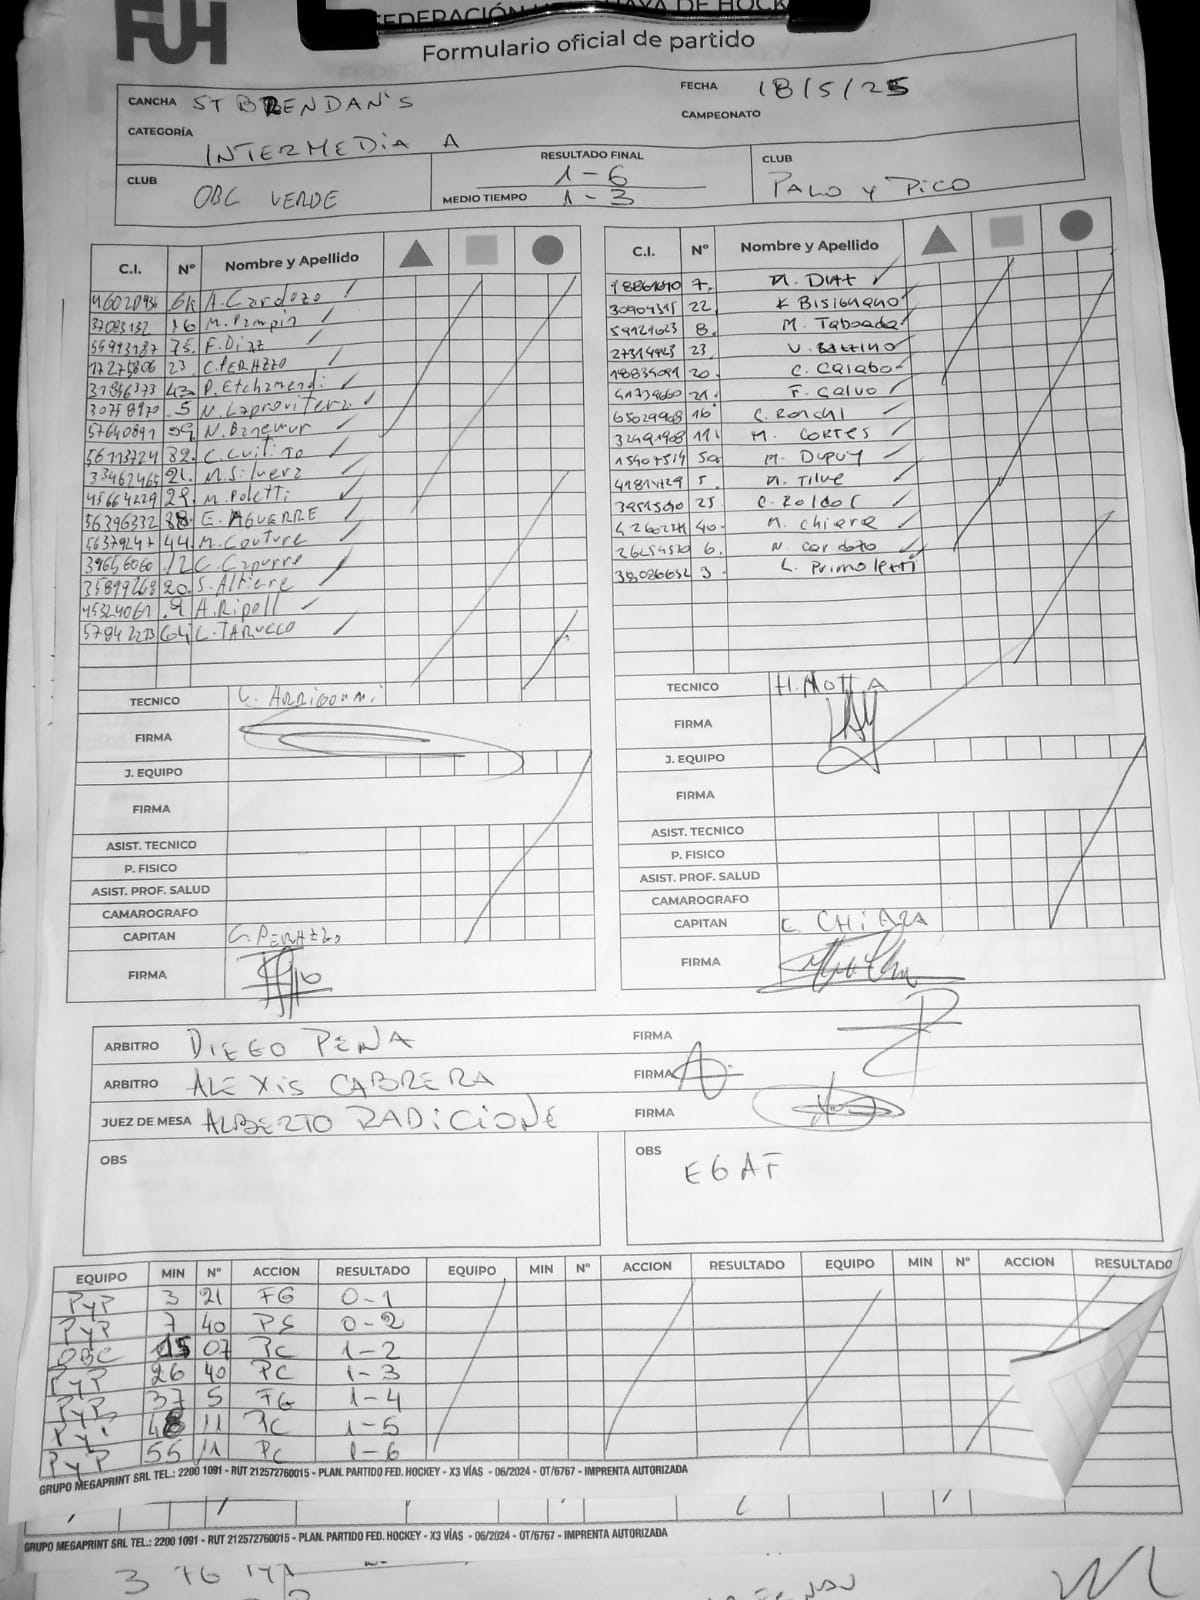 FUH
FEDERACIÓN
Formulario oficial de partido
CANCHA ST BRENDAN'S
FECHA 18/5/25
CATEGORÍA INTERMEDIA A
CAMPEONATO
CLUB OBC VERDE
RESULTADO FINAL 1-6
MEDIO TIEMPO 1-3
CLUB PALO y PICO
C.I. Nº Nombre y Apellido
A. Cardozo
37083132 16 M. Pampin
75. F. Diaz
23 C. PERAZZO
P. Etchamendi
5 N. Laproviterz
N. Baremur
C. Cuitiño
33462465 21. M. Silvera
45664229 29. M. Poletti
56396332 88. E. AGUERRE
56379247 44. M. Couture
39656060 12 C. Caporre
35899268 20. S. Altiere
45324061 9 A. Ripoll
64 L. TARUCCO
TECNICO C. Arrigonni
FIRMA
J. EQUIPO
FIRMA
ASIST. TECNICO
P. FISICO
ASIST. PROF. SALUD
CAMAROGRAFO
CAPITAN C. PERAZZO
FIRMA
C.I. Nº Nombre y Apellido
7.
22. Bisignano
8. M. Taboada
23 V. Battino
20. C. Calabo
21. F. Calvo
16 C. Ronchi
11. M. CORTES
M. DUPUY
5. Tilve
25 C. Roldos
40. M. Chiara
6. N. Cardozo
3. L. Primoletti
TECNICO H. MOTTA
FIRMA
J. EQUIPO
FIRMA
ASIST. TECNICO
P. FISICO
ASIST. PROF. SALUD
CAMAROGRAFO
CAPITAN E. CHIARA
FIRMA
ARBITRO DIEGO PENA FIRMA
ARBITRO ALEXIS CABRERA FIRMA
JUEZ DE MESA ALBERTO RADICIONE FIRMA
OBS
OBS EGAF
EQUIPO MIN Nº ACCION RESULTADO EQUIPO MIN Nº ACCION RESULTADO EQUIPO MIN Nº ACCION RESULTADO
PyP 3 21 FG 0-1
PyP 7 40 PS 0-2
OBC 15 07 PC 1-2
PyP 26 40 PC 1-3
PyP 37 5 FG 1-4
PyP 48 11 PC 1-5
PyP 55 11 PC 1-6
GRUPO MEGAPRINT SRL TEL.: 2200 1091 - RUT 212572760015 - PLAN. PARTIDO FED. HOCKEY - X3 VÍAS - 06/2024 - OT/6767 - IMPRENTA AUTORIZADA
GRUPO MEGAPRINT SRL TEL.: 2200 1091 - RUT 212572760015 - PLAN. PARTIDO FED. HOCKEY - X3 VÍAS - 06/2024 - OT/6767 - IMPRENTA AUTORIZADA